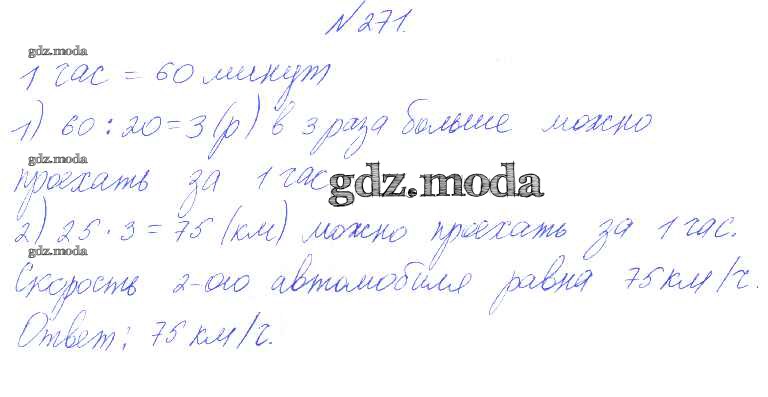 №271.
gdz.moda
1 час = 60 минут
1) 60 : 20 = 3 (р) в 3 раза больше можно
gdz.moda
проехать за 1 час
gdz.moda
2) 25 · 3 = 75 (км) можно проехать за 1 час.
gdz.moda
Скорость 2-ого автомобиля равна 75 км/ч.
Ответ: 75 км/ч.